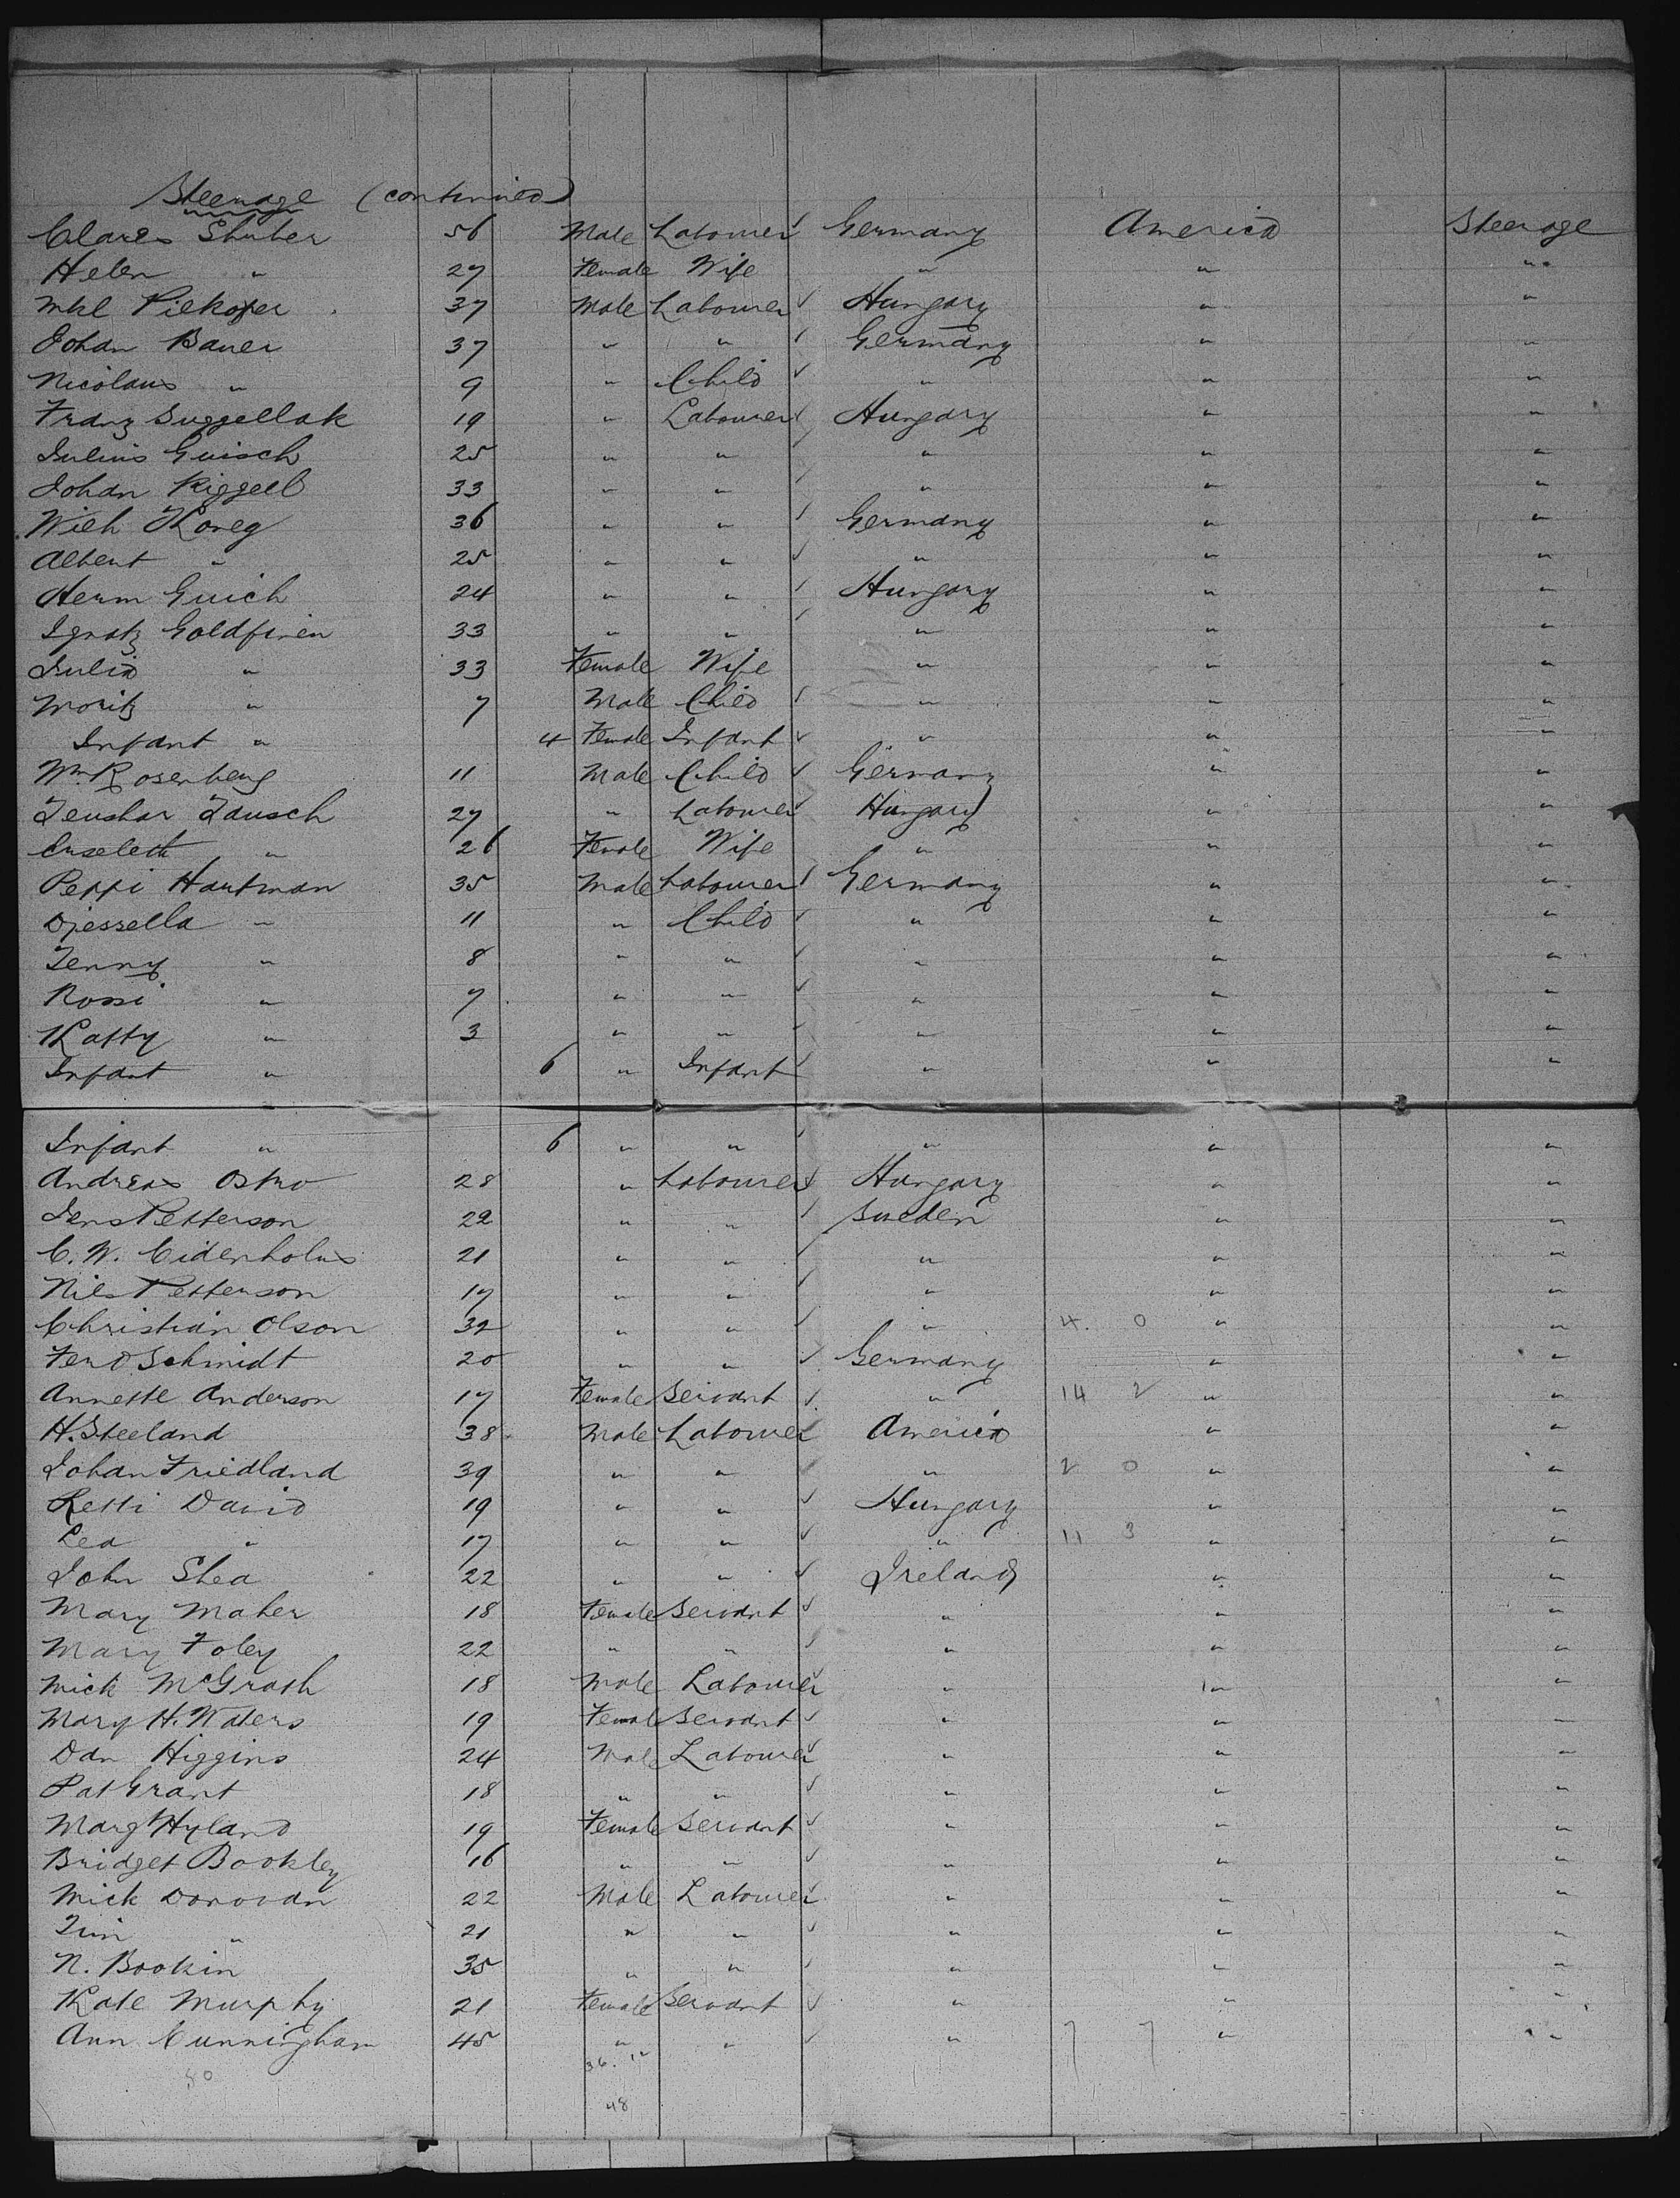 Steerage (continued)
Clares Shuber 56 Male Labourer Germany America Steerage
Helen " 27 Female Wife " " "
Mkl Piekoper 37 Male Labourer Hungary " "
Johan Bauer 37 " " Germany " "
Nicolaus " 9 " Child " " "
Franz Suggellak 19 " Labourer Hungary " "
Julius Guisch 25 " " " " "
Johan Riggell 33 " " " " "
Wilh Koneg 36 " " Germany " "
Albert " 25 " " " " "
Herm Guich 24 " " Hungary " "
Ignatz Goldfinen 33 " " " " "
Julia " 33 Female Wife " " "
Moritz " 7 Male Child " " "
Infant " 4 Female Infant " " "
Wm Rosenberg 11 Male Child Germany " "
Jausch 27 " Labourer Hungary " "
" 26 Female Wife " " "
Peppi Hartman 35 Male Labourer Germany " "
Djessella " 11 " Child " " "
Jenny " 8 " " " " "
Rossi " 7 " " " " "
Katty " 3 " " " " "
Infant " 6 " Infant " " "
Infant " 6 " " " " "
Andreas Ostro 28 " Labourer Hungary " "
Jens Petterson 22 " " Sweden " "
C. W. Cidenholus 21 " " " " "
Nils Petterson 17 " " " " "
Christian Olson 32 " " " 4. 0 " "
Ferd Schmidt 20 " " Germany " "
Annette Anderson 17 Female Servant " 14 2 " "
H. Steeland 38 Male Labourer America " "
Johan Friedland 39 " " " 2 0 " "
Retti David 19 " " Hungary " "
Lea " 17 " " " 11 3 " "
John Shea 22 " " Ireland " "
Mary Maher 18 Female Servant " " "
Mary Foley 22 " " " " "
Mick McGrath 18 Male Labourer " " "
Mary H. Waters 19 Female Servant " " "
Dan Higgins 24 Male Labourer " " "
Pat Grant 18 " " " " "
Marg Hyland 19 Female Servant " " "
Bridget Bookley 16 " " " " "
Mick Donovan 22 Male Labourer " " "
Jim " 21 " " " " "
N. Bookin 35 " " " " "
Kate Murphy 21 Female Servant " " "
Ann Cunningham 45 " " " 7 7 " "
36. 12
50
48